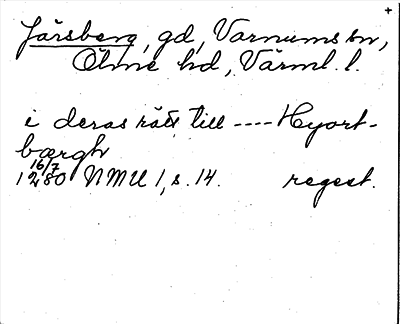 +
Järsberg, gd, Varnums sn,
Ölme hd, Värml. l.
i deras rätt till ---- Hyort-
bærgh
16/7
1280 NMU 1, s. 14. regest.